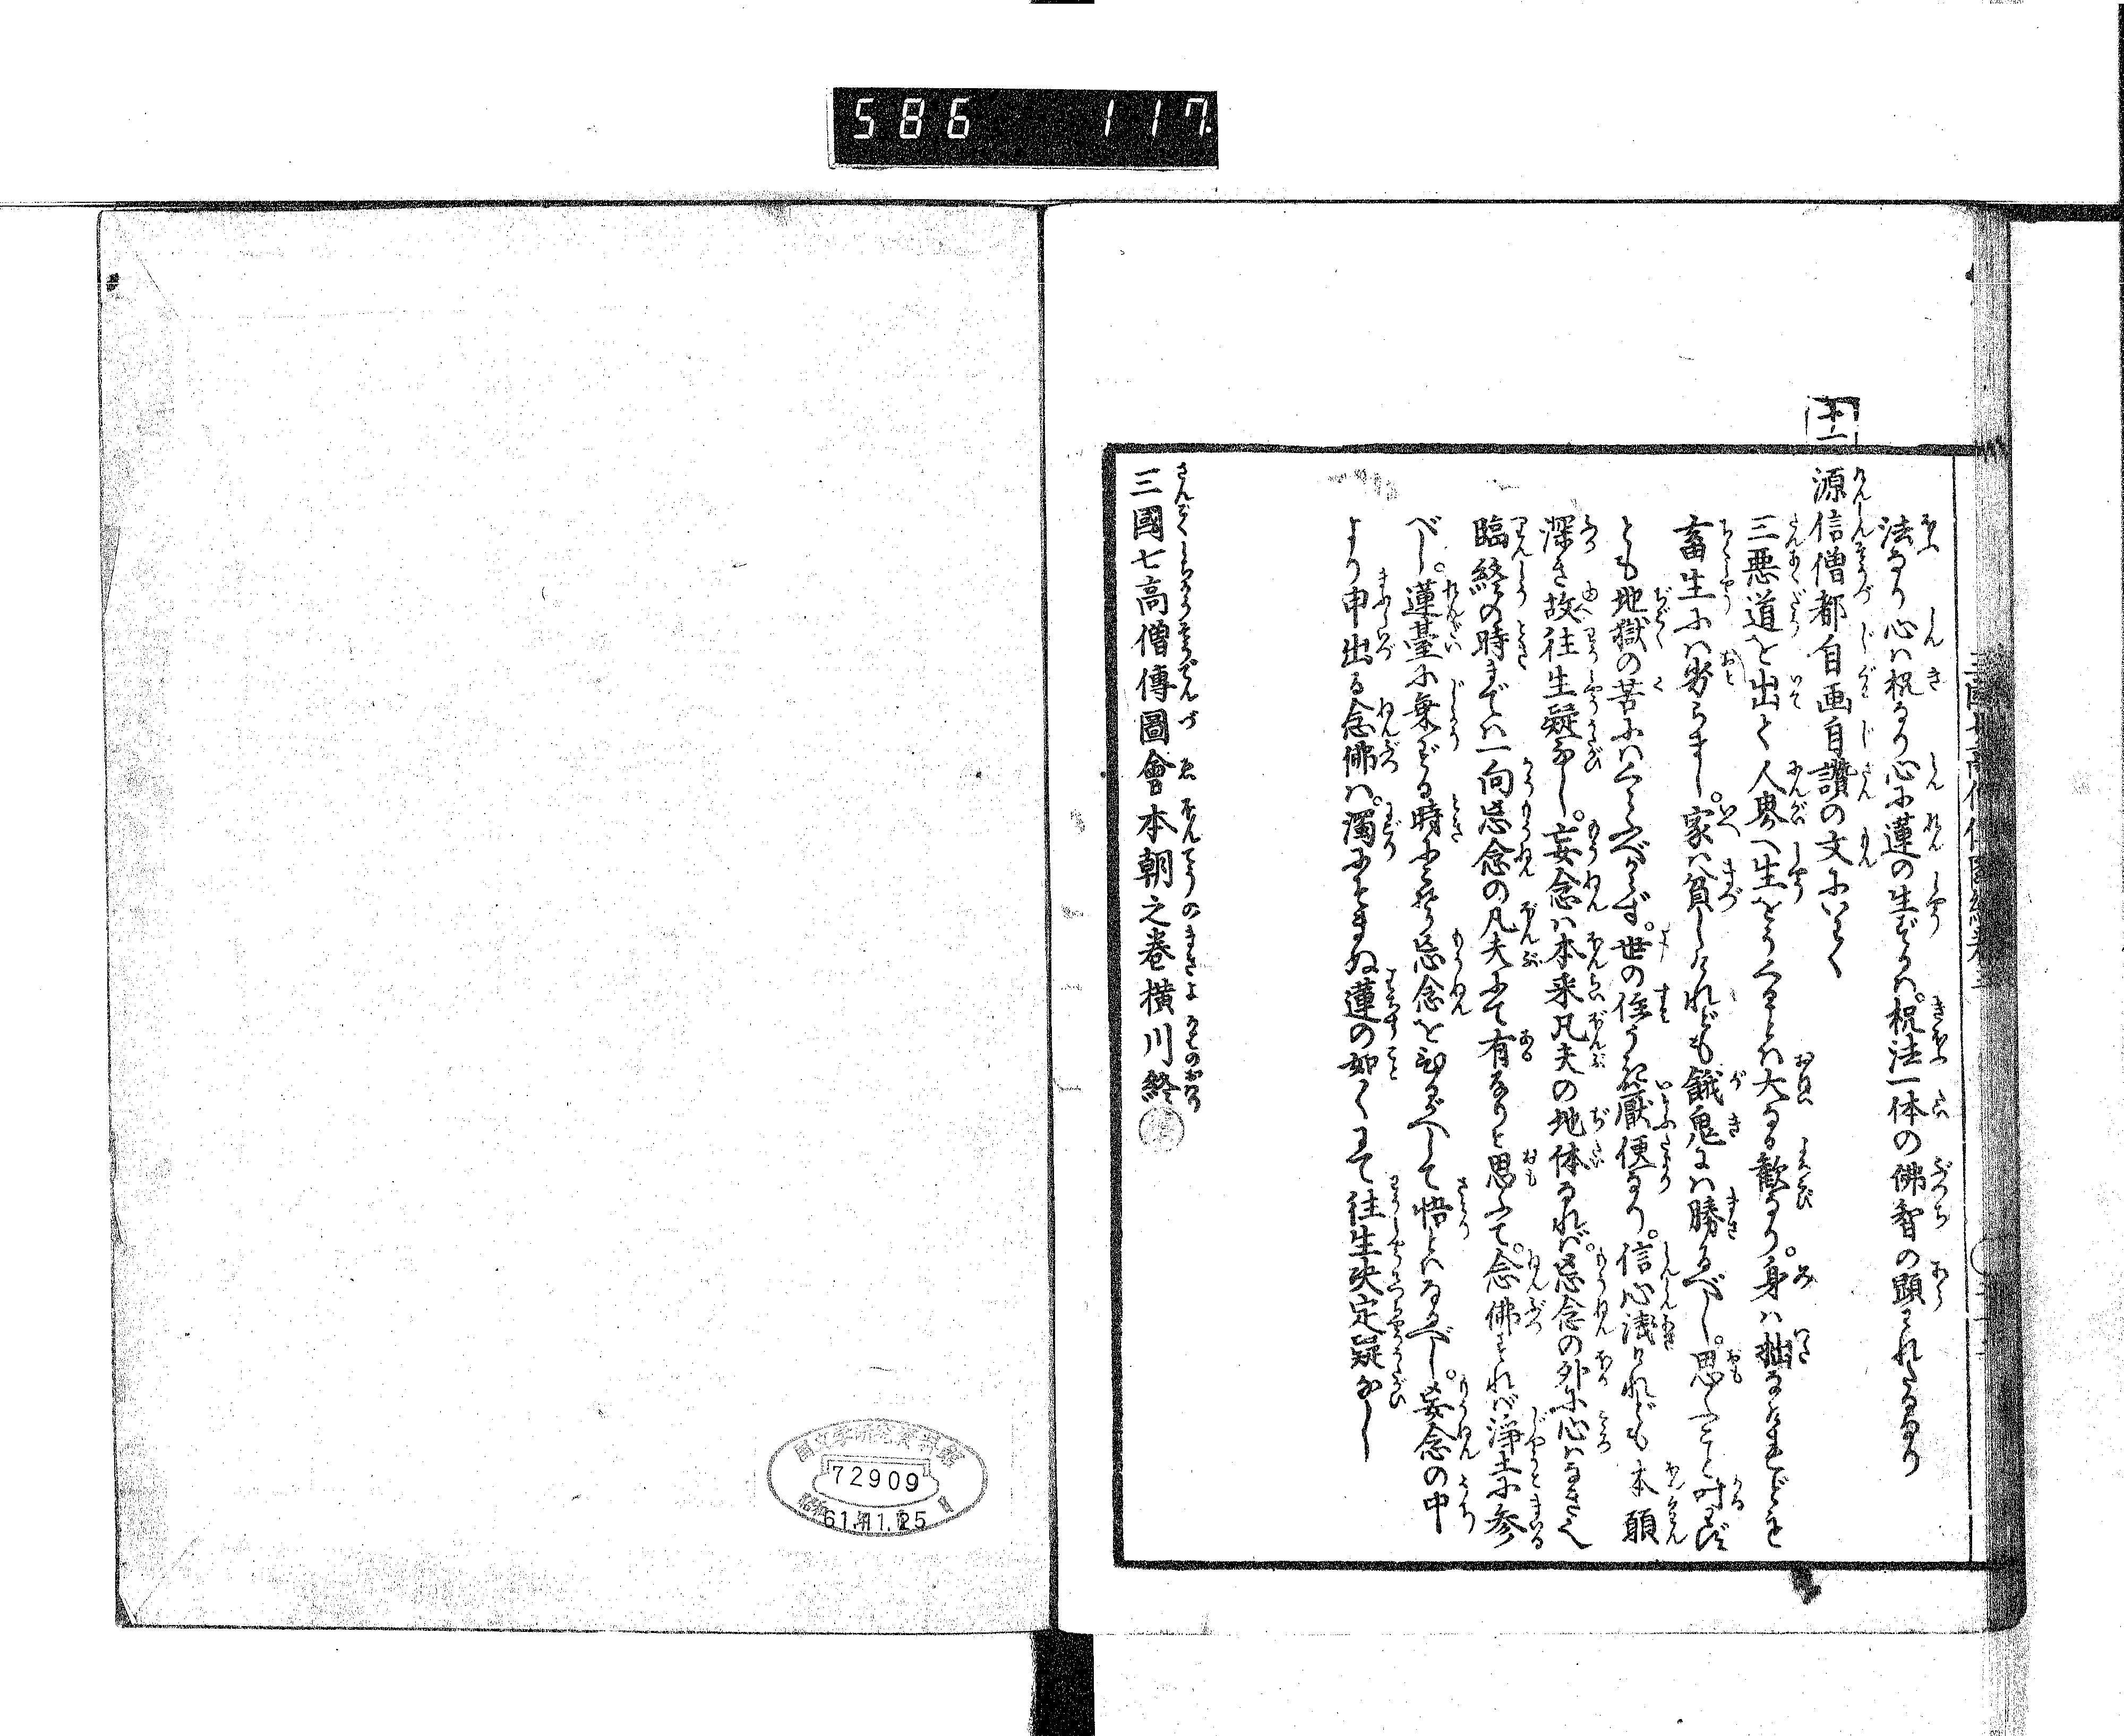 586 117
十一
法なり心ハ机なり心に蓮の生ずるハ。机法一体の佛智の顕ハれたるなり
源信僧都自画自讃の文にいはく
三悪道を出て人界へ生をうくることハ大なる歓なり。身ハ拙なけれども
畜生にハ劣らまじ。家ハ貧しけれども餓鬼にハ勝るべし。思ふこと叶ハず
とも地獄の苦にハくらべからず。世の住うきハ厭便なり。信心浅けれども本願
深き故往生疑なし。妄念ハ本来凡夫の地体なれば。忘念の外に心ハなきぞへ
臨終の時までハ一向忘念の凡夫にて有なりと思ふて。念佛すれば浄土に参
べし。蓮臺に乗ずる時にこそ忘念をひるがへして悟とハなるべし。妄念の中
より申出る念佛ハ。濁にそまぬ蓮の如くにて往生决定疑なし
三國七高僧傳圖會本朝之巻横川終
さんごくしちかうそうでんづゑほんてうのまきよかハのおわり
72909
61.11.25